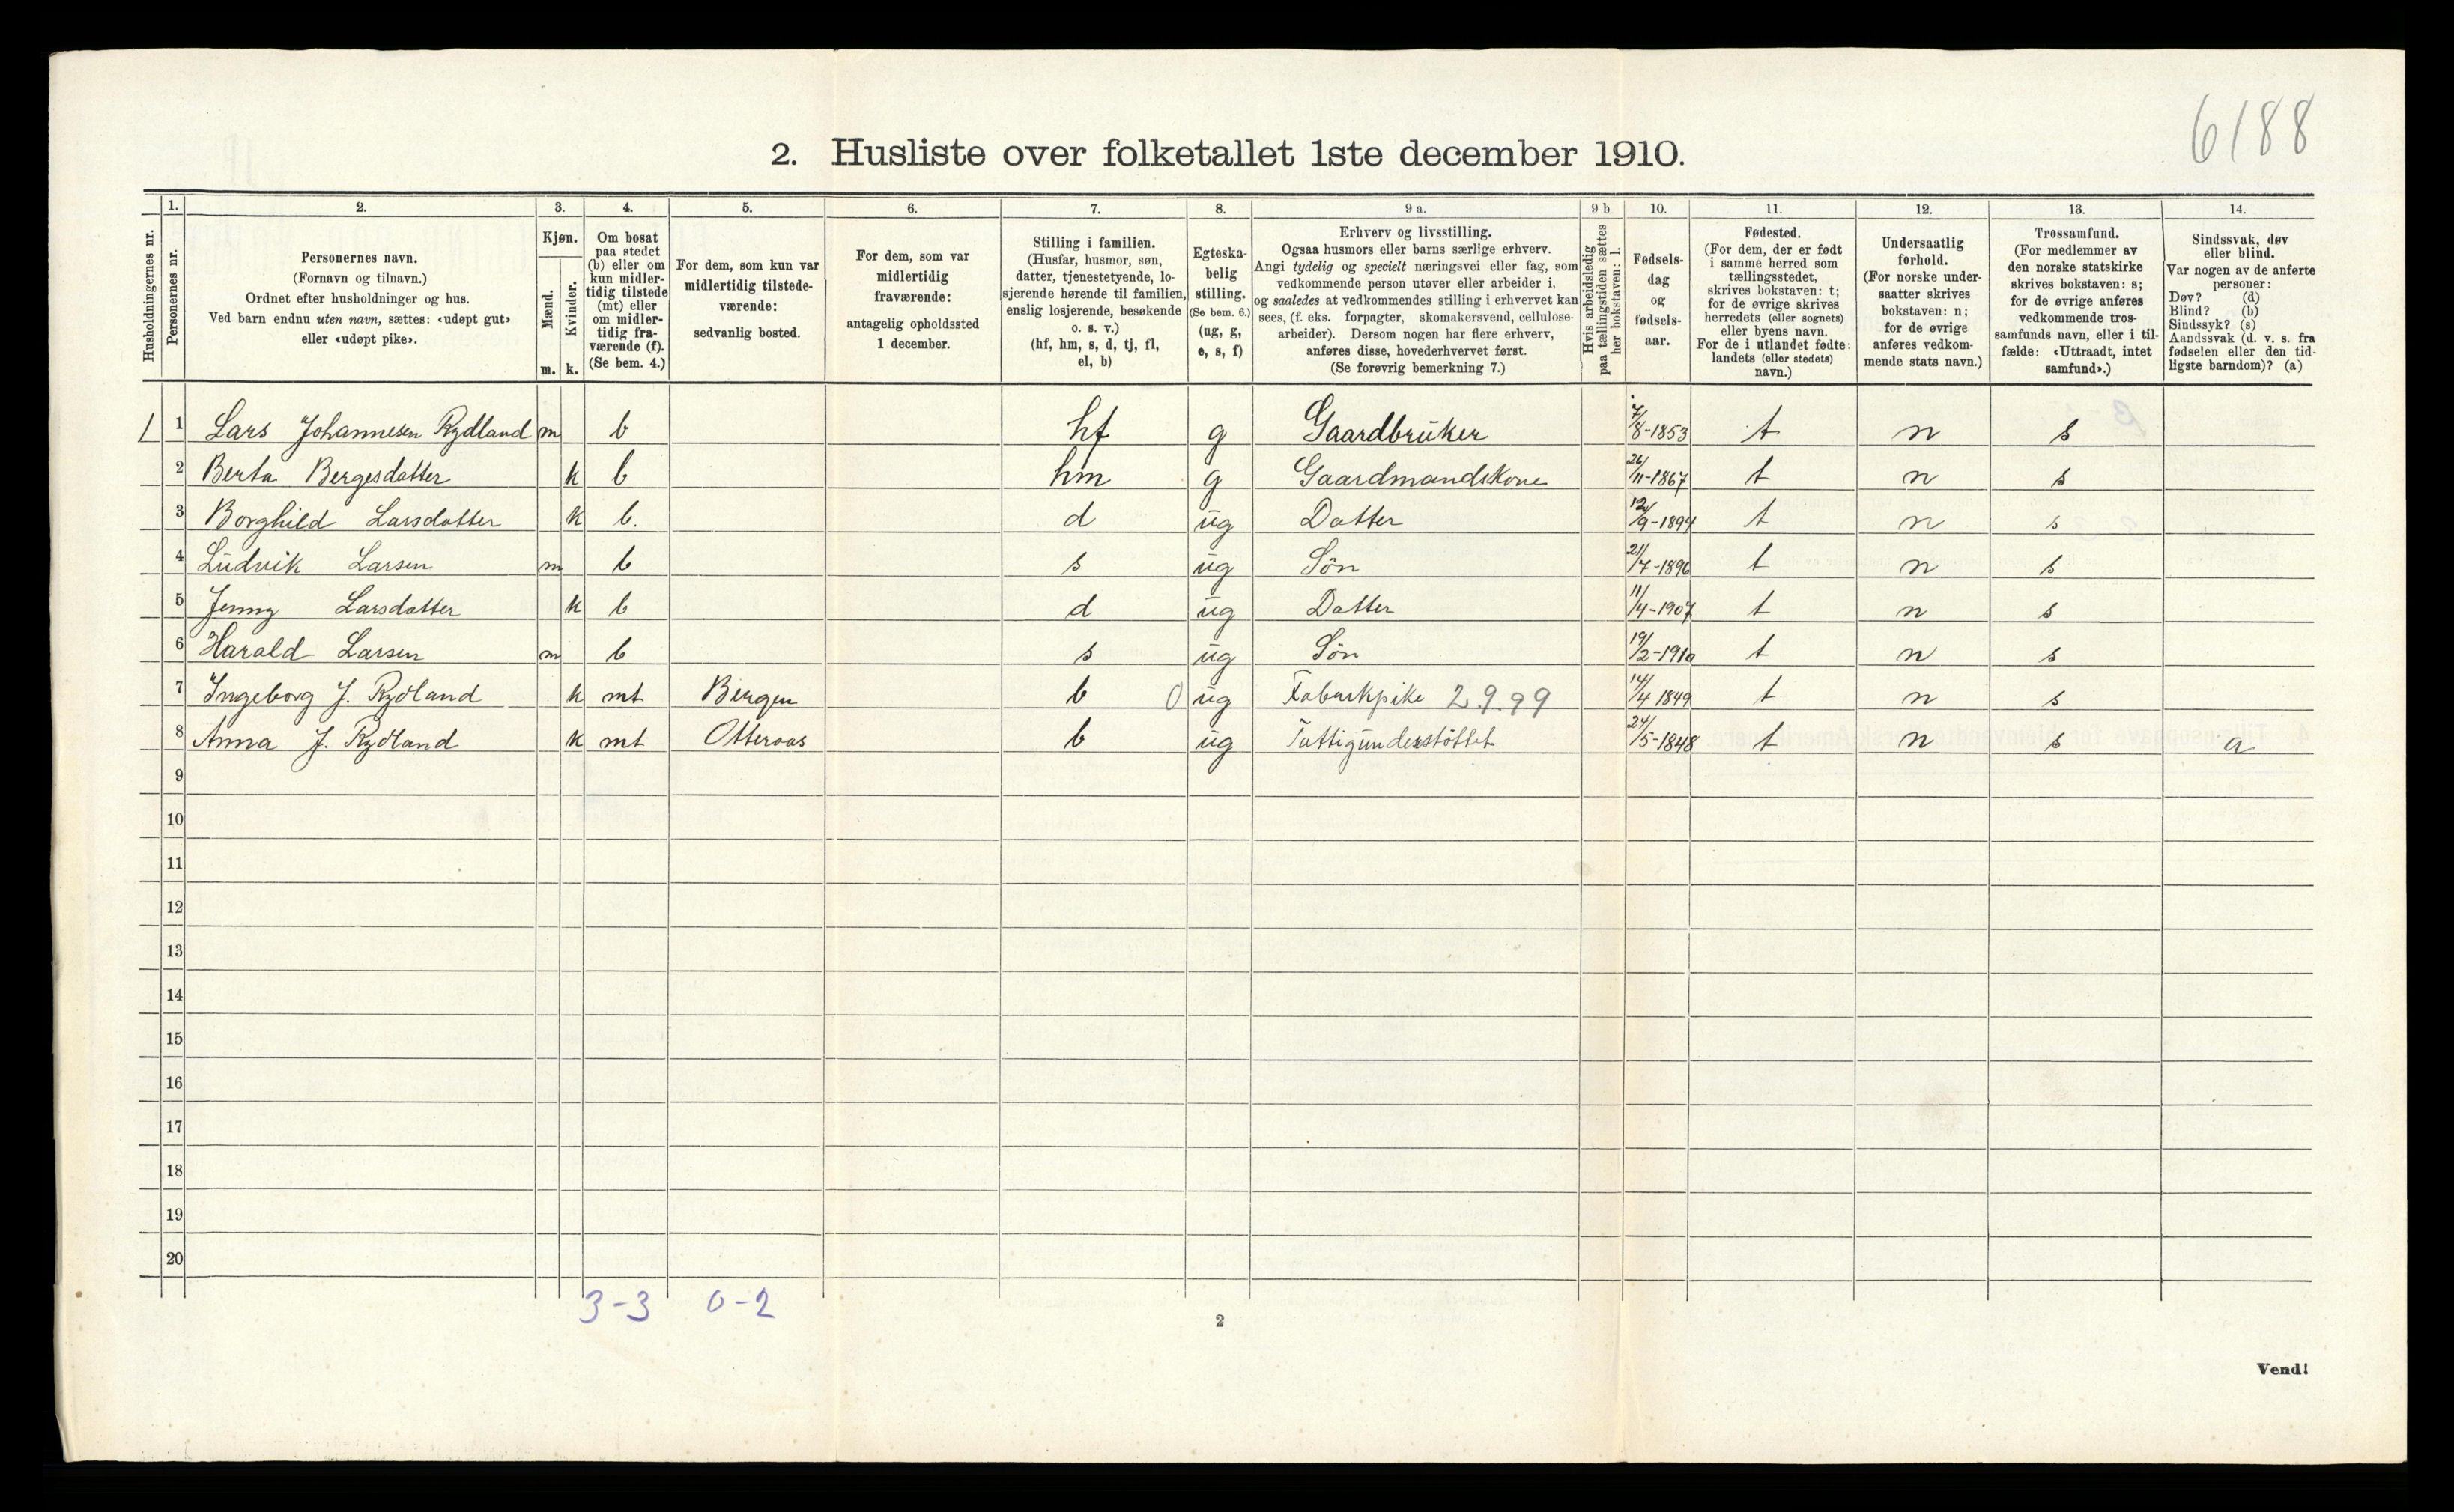 6188
2. Husliste over folketallet 1ste december 1910.
Husholdningernes nr.
1.
Personernes nr.
2.
Personernes navn.
(Fornavn og tilnavn.)
Ordnet efter husholdninger og hus.
Ved barn endnu uten navn, sættes: «udøpt gut»
eller «udøpt pike».
3.
Kjøn.
Mænd.
Kvinder.
m. k.
4.
Om bosat
paa stedet
(b) eller om
kun midler-
tidig tilstede
(mt) eller
om midler-
tidig fra-
værende (f).
(Se bem. 4.)
5.
For dem, som kun var
midlertidig tilstede-
værende:
sedvanlig bosted.
6.
For dem, som var
midlertidig
fraværende:
antagelig opholdssted
1 december.
7.
Stilling i familien.
(Husfar, husmor, søn,
datter, tjenestetyende, lo-
sjerende hørende til familien,
enslig losjerende, besøkende
o. s. v.)
(hf, hm, s, d, tj, fl,
el, b)
8.
Egteska-
belig
stilling.
(Se bem. 6.)
(ug, g,
e, s, f)
9 a.
Erhverv og livsstilling.
Ogsaa husmors eller barns særlige erhverv.
Angi tydelig og specielt næringsvei eller fag, som
vedkommende person utøver eller arbeider i,
og saaledes at vedkommendes stilling i erhvervet kan
sees, (f. eks. forpagter, skomakersvend, cellulose-
arbeider). Dersom nogen har flere erhverv,
anføres disse, hovederhvervet først.
(Se forøvrig bemerkning 7.)
9 b
Hvis arbeidsledig
paa tællingstiden sættes
her bokstaven: l.
10.
Fødsels-
dag
og
fødsels-
aar.
11.
Fødested.
(For dem, der er født
i samme herred som
tællingsstedet,
skrives bokstaven: t;
for de øvrige skrives
herredets (eller sognets)
eller byens navn.
For de i utlandet fødte:
landets (eller stedets)
navn.)
12.
Undersaatlig
forhold.
(For norske under-
saatter skrives
bokstaven: n;
for de øvrige
anføres vedkom-
mende stats navn.)
13.
Trossamfund.
(For medlemmer av
den norske statskirke
skrives bokstaven: s;
for de øvrige anføres
vedkommende tros-
samfunds navn, eller i til-
fælde: «Uttraadt, intet
samfund».)
14.
Sindssvak, døv
eller blind.
Var nogen av de anførte
personer:
Døv? (d)
Blind? (b)
Sindssyk? (s)
Aandssvak (d. v. s. fra
fødselen eller den tid-
ligste barndom)? (a)
1 1 Lars Johannesen Rydland m b hf g Gaardbrüker 7/8-1853 t n s
2 Berta Bergesdatter k b hm g Gaardmandskone 26/11-1867 t n s
3 Borghild Larsdatter k b. d üg Datter 12/9-1894 t n s
4 Lüdvik Larsen m b s üg Sön 21/7-1896 t n s
5 Jenny Larsdatter k b d üg Datter 11/4-1907 t n s
6 Harald Larsen m b s üg Sön 19/2-1910 t n s
7 Ingeborg J. Rydland k mt Bergen b 0 üg Fabrikpike 2.9.99 14/4 1849 t n s
8 Anna J. Rydland k mt Otteraas b üg Fattigünderstöttet 24/5-1848 t n s a
9
10
11
12
13
14
15
16
17
18
19
20
3-3 0-2
2
Vend!